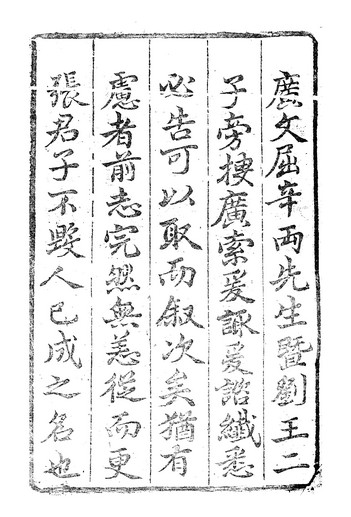 廣文屈辛両先生暨劉王二
子旁搜廣索爰諏爰諮纎悉
必告可以取而敘次矣猶有
慮者前志完然無恙從而更
張君子不毀人已成之名也